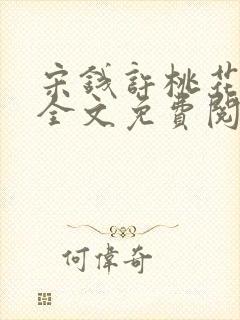 宋錢許桃花
全文免費閱
何偉奇